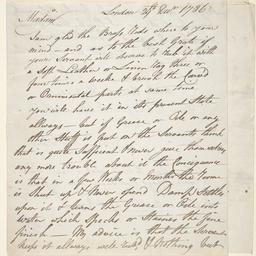 London 29th Decr 1786
Madam
I am glad the Brass Ends where to your
mind - and as to the best Grate if
your Servant will observe to rub it with
a Soft Leather or Linen Rag three or
four times a week & brush the Carved
or Ornamental parts at same time
you will have it in its present State
allways - but if Grease or Oile or any
other Stuff is put on the Servants think
that is quite Sufficient & never give themselves
any more trouble about it the Consequence
is that in a few Weeks or Months the room
is Shut up & Never aired Damp Settles
upon it & turns the Grease or Oile into
Water which Specks or Staines the fine
finish - My advice is that the Servant
keeps it allways well rub'd & Nothing but